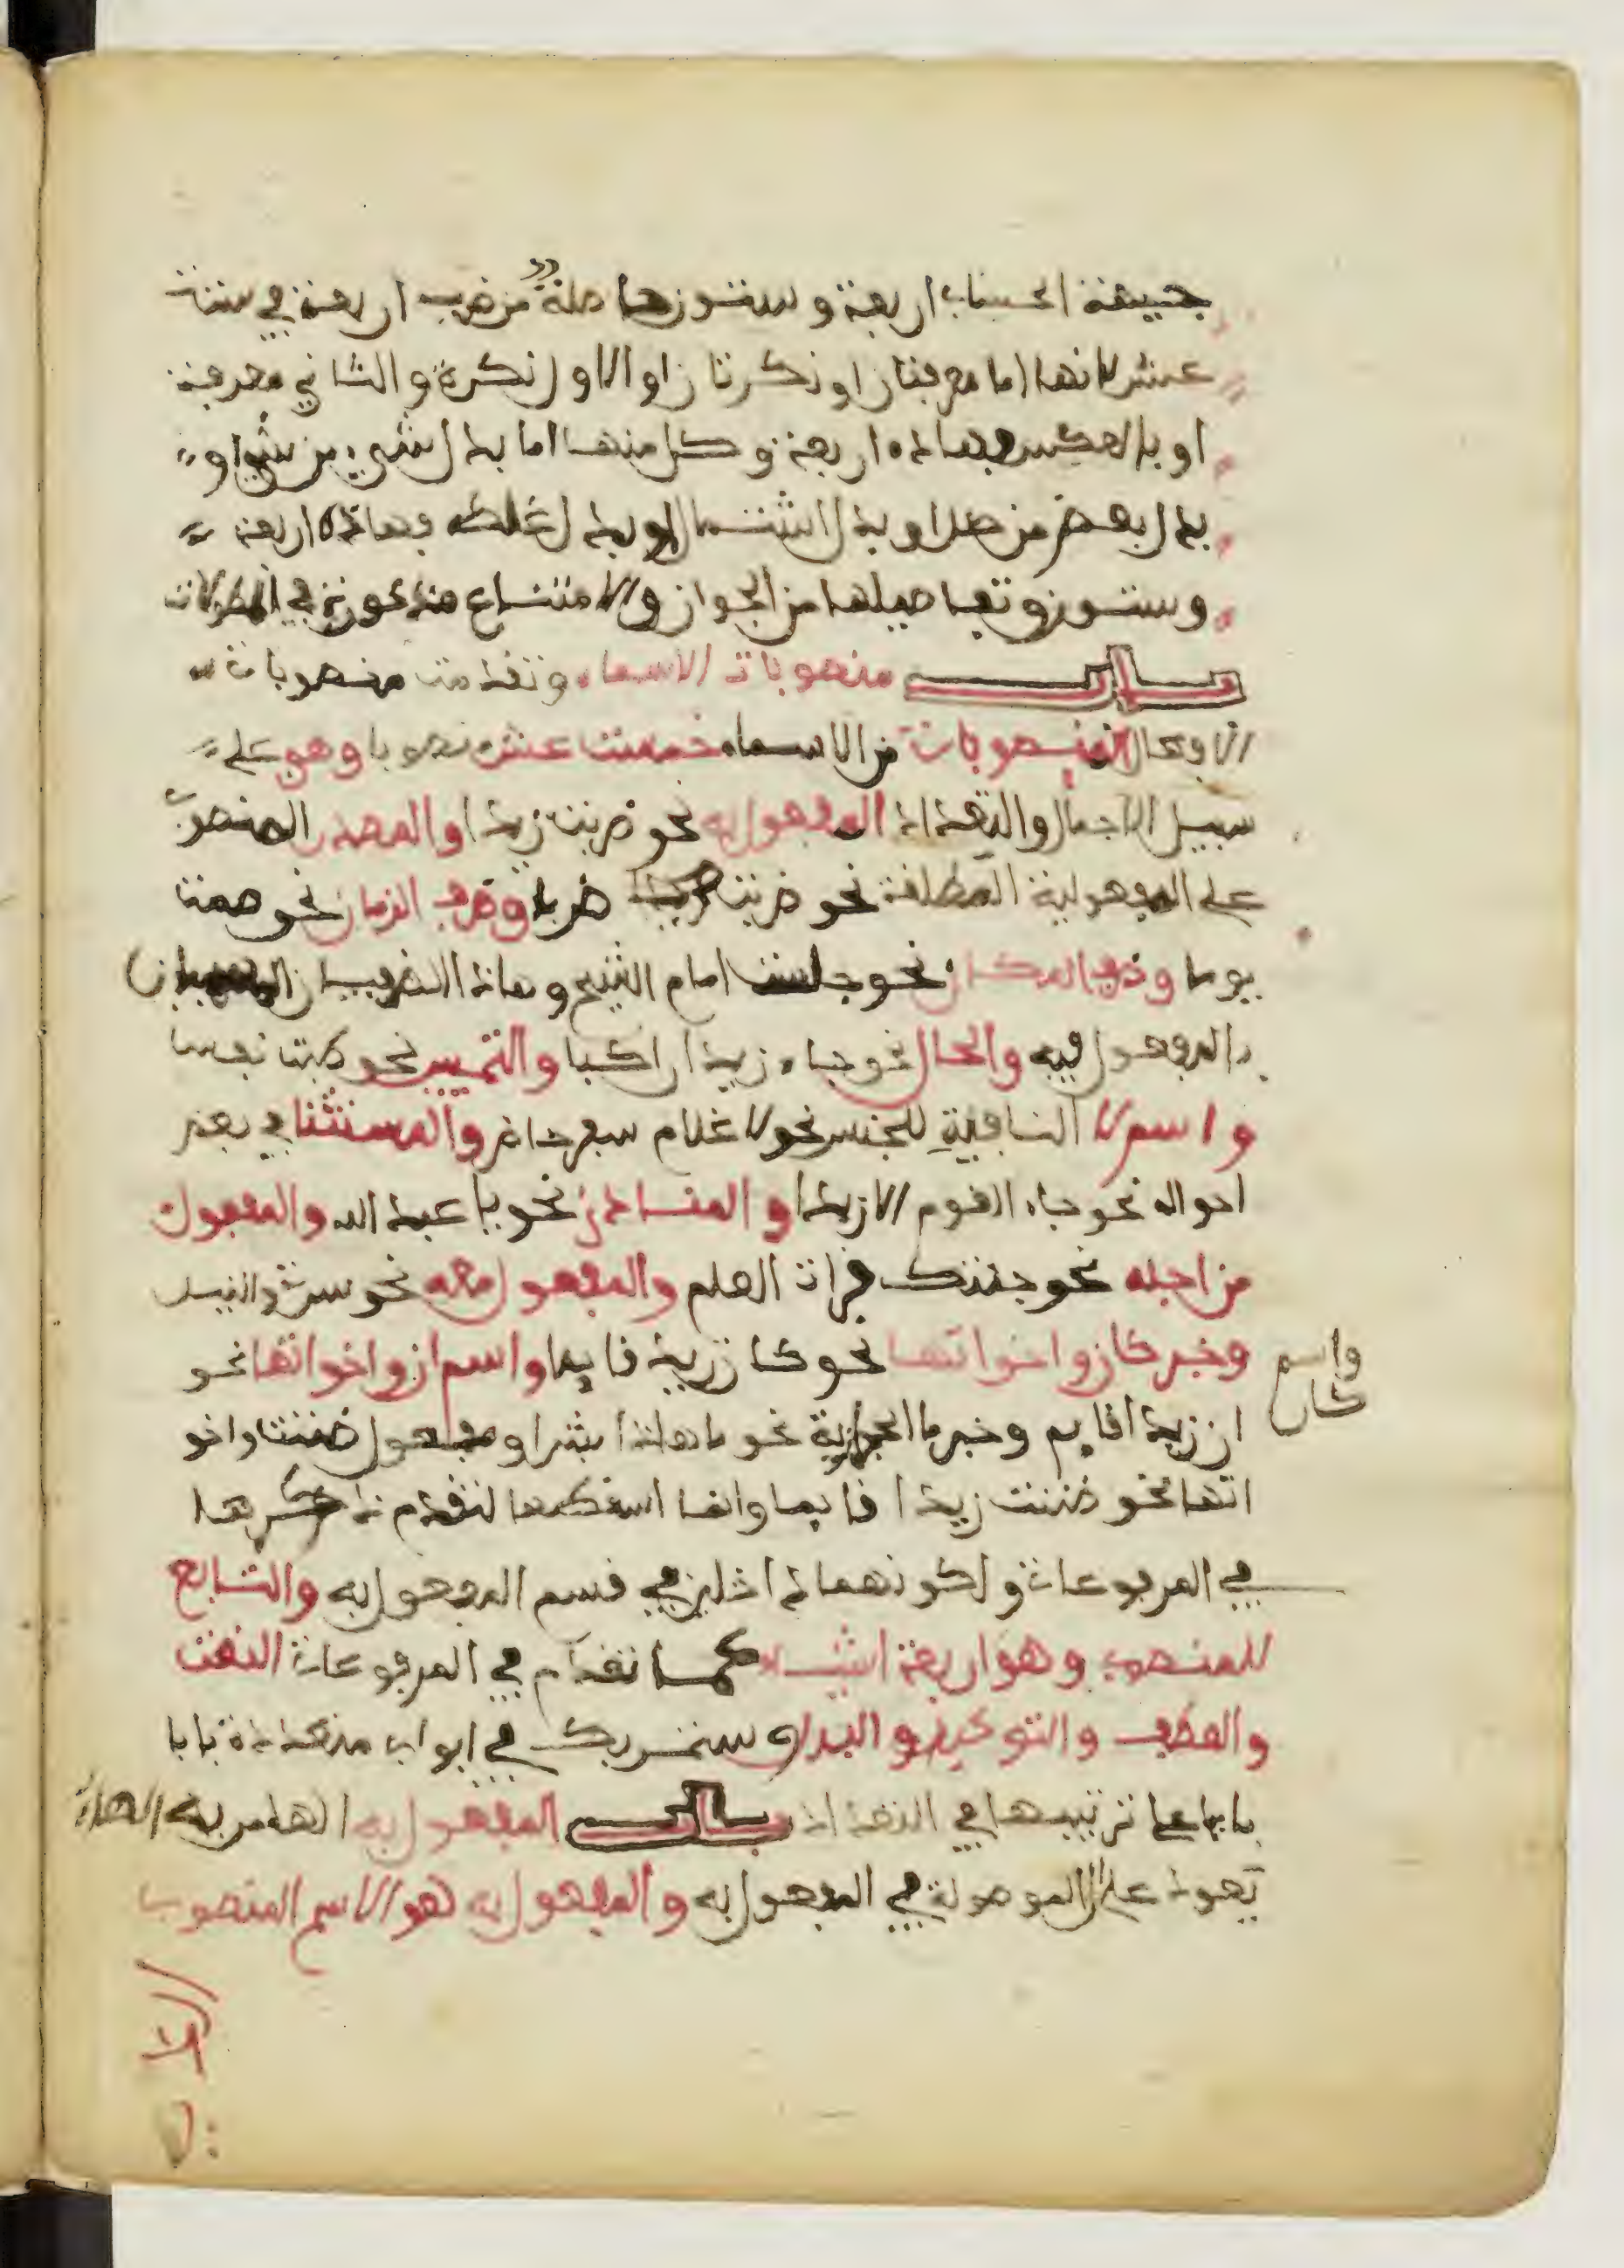 جيفة الحساب اربعة وستون حاصلة من ضرب اربعة في ستة
عشر لانهما اما معرفتان او نكرتان او الاول نكرة والثاني معرفة
او بالعكس فهاذه اربعة وكل منها اما بدل شيء من شيء او
بدل بعض من كل او بدل اشتمال او بدل غلط فهاذه اربعة
وستون وتفاصيلها من الجواز والامتناع مذكورة في المطولات
باب منصوبات الاسماء وتقدمت منصوبات
الافعال المنصوبات من الاسماء خمست عشر منصوبا وهو على
سبيل الاجمال والتعداد المفعول به نحو ضربت زيدا والمصدر المنصوب
على المفعولية المطلقة نحو ضربت ضربا وظرف الزمان نحو صمت
يوما وظرف المكان نحو جلست امام الشيخ وهاذا الظرفان
المفعول فيه والحال نحو جاء زيد اراكبا والتمييز نحو طبت نفسا
واسم لا النافية للجنس نحو لا غلام سفر حاضر والمستثنا في بعض
احواله نحو جاء القوم الا زيدا والمنادى نحو يا عبد الله والمفعول
من اجله نحو جئتك قراءة العلم والمفعول معه نحو سرت والنيل
وخبر كان واخواتها نحو كان زيد قايما واسم ان واخواتها نحو
واسم كان
ان زيدا قايم وخبر ما الحجازية نحو ما هاذا بشرا ومفعول ظننت واخو
اتها نحو ظننت زيدا قايما وانما اسقطهما لتقدم ذكرهما
في المرفوعات ولكونهما داخلين في قسم المفعول به والتابع
للمنصوب وهو اربعة اشياء كما تقدم في المرفوعات النعت
والعطف والتوكيد والبدل وستمر بك في ابواب متعددة بابا
بابا على ترتيبها في التعداد باب المفعول به الهاء من به الهاء
تعود على ال الموصولة في المفعول به والمفعول به هو الاسم المنصوب